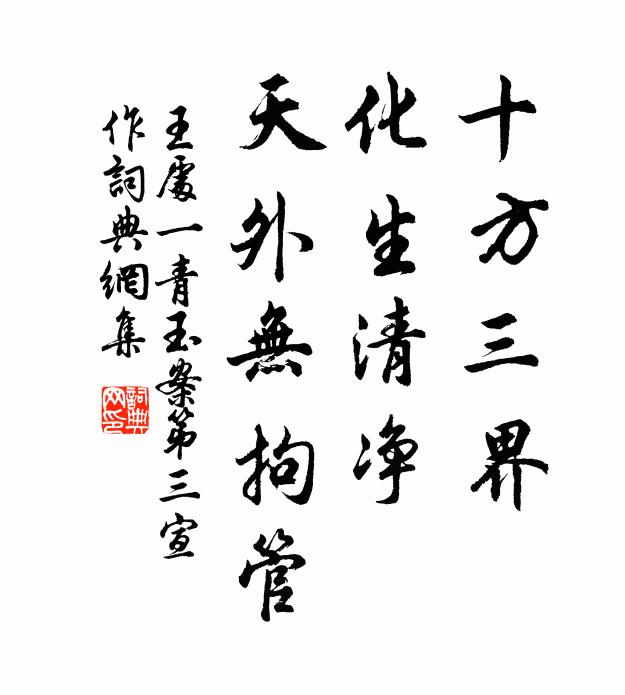 十方三界
化生清净
天外無拘管
王處一青玉案第三宣
作詞典網集
詞典網印